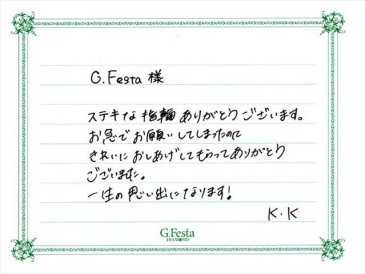 G.Festa 様
ステキな指輪ありがとうございます。
お急ぎでお願いしてしまったのに
きれいにおしあげしてもらってありがとう
ございました。
一生の思い出になります!
K.K
G.Festa
DIAMOND